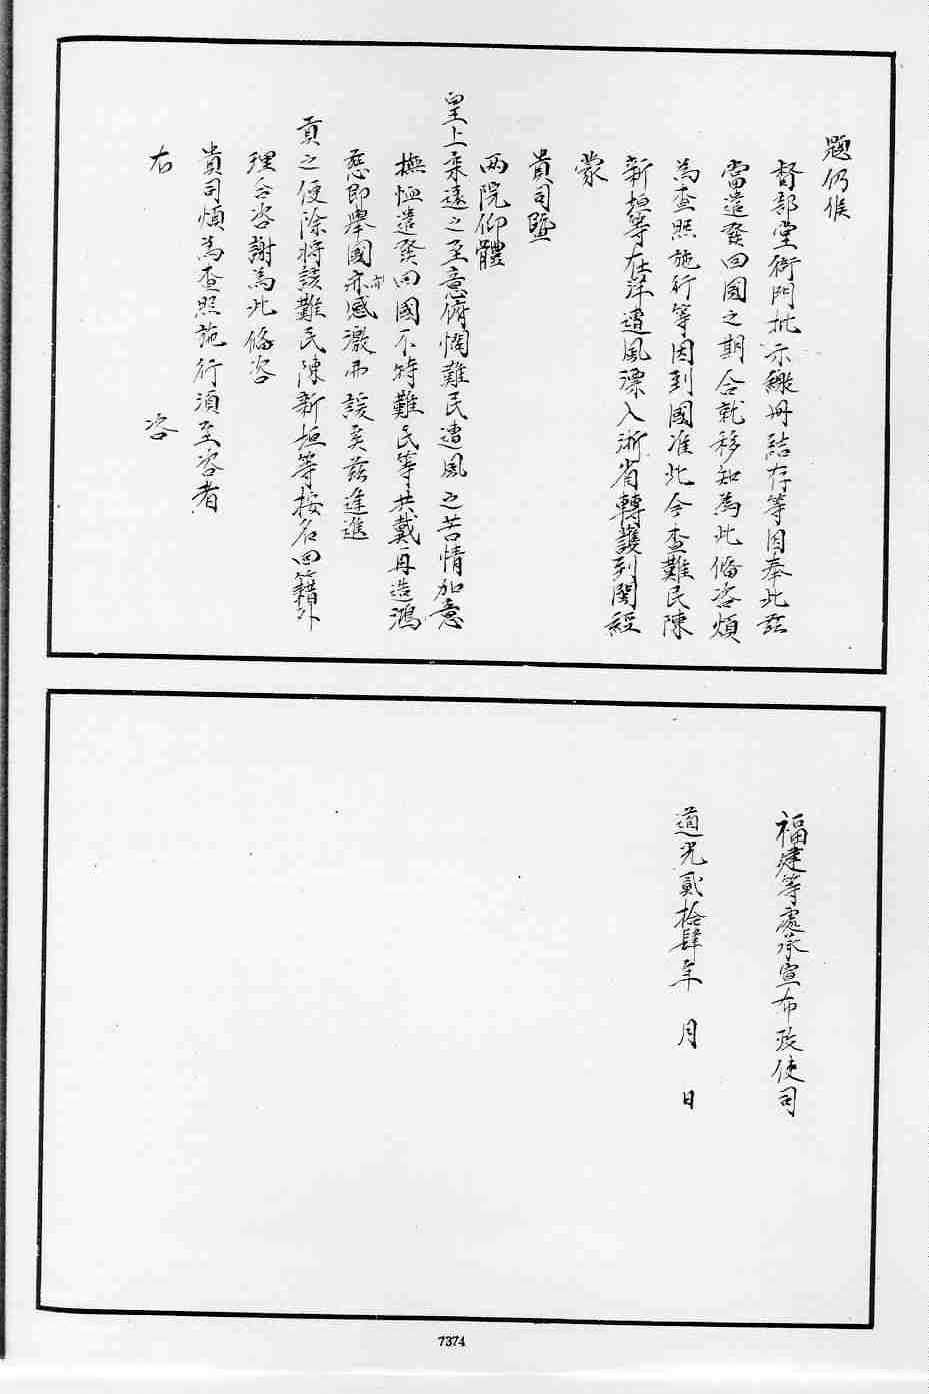 題仍候
督部堂衙門批示繳册結存等因奉此玆
當遣發回國之期合就移知為此備咨煩
為查照施行等因到國准此今查難民陳
新垣等在洋遭風漂入浙省轉護到閩經
蒙
貴司暨
両院仰體
皇上柔遠之至意俯憫難民遭風之苦情加意
撫恤遣發回國不特難民等共戴再造鴻
慈即舉國亦感激弗諼矣茲逢進
貢之便除將該難民陳新垣等按名回籍外
理合咨謝為此備咨
貴司煩為查照施行須至咨者
右　咨
福建等處承宣布政使司
道光貳拾肆年　月　日
7374